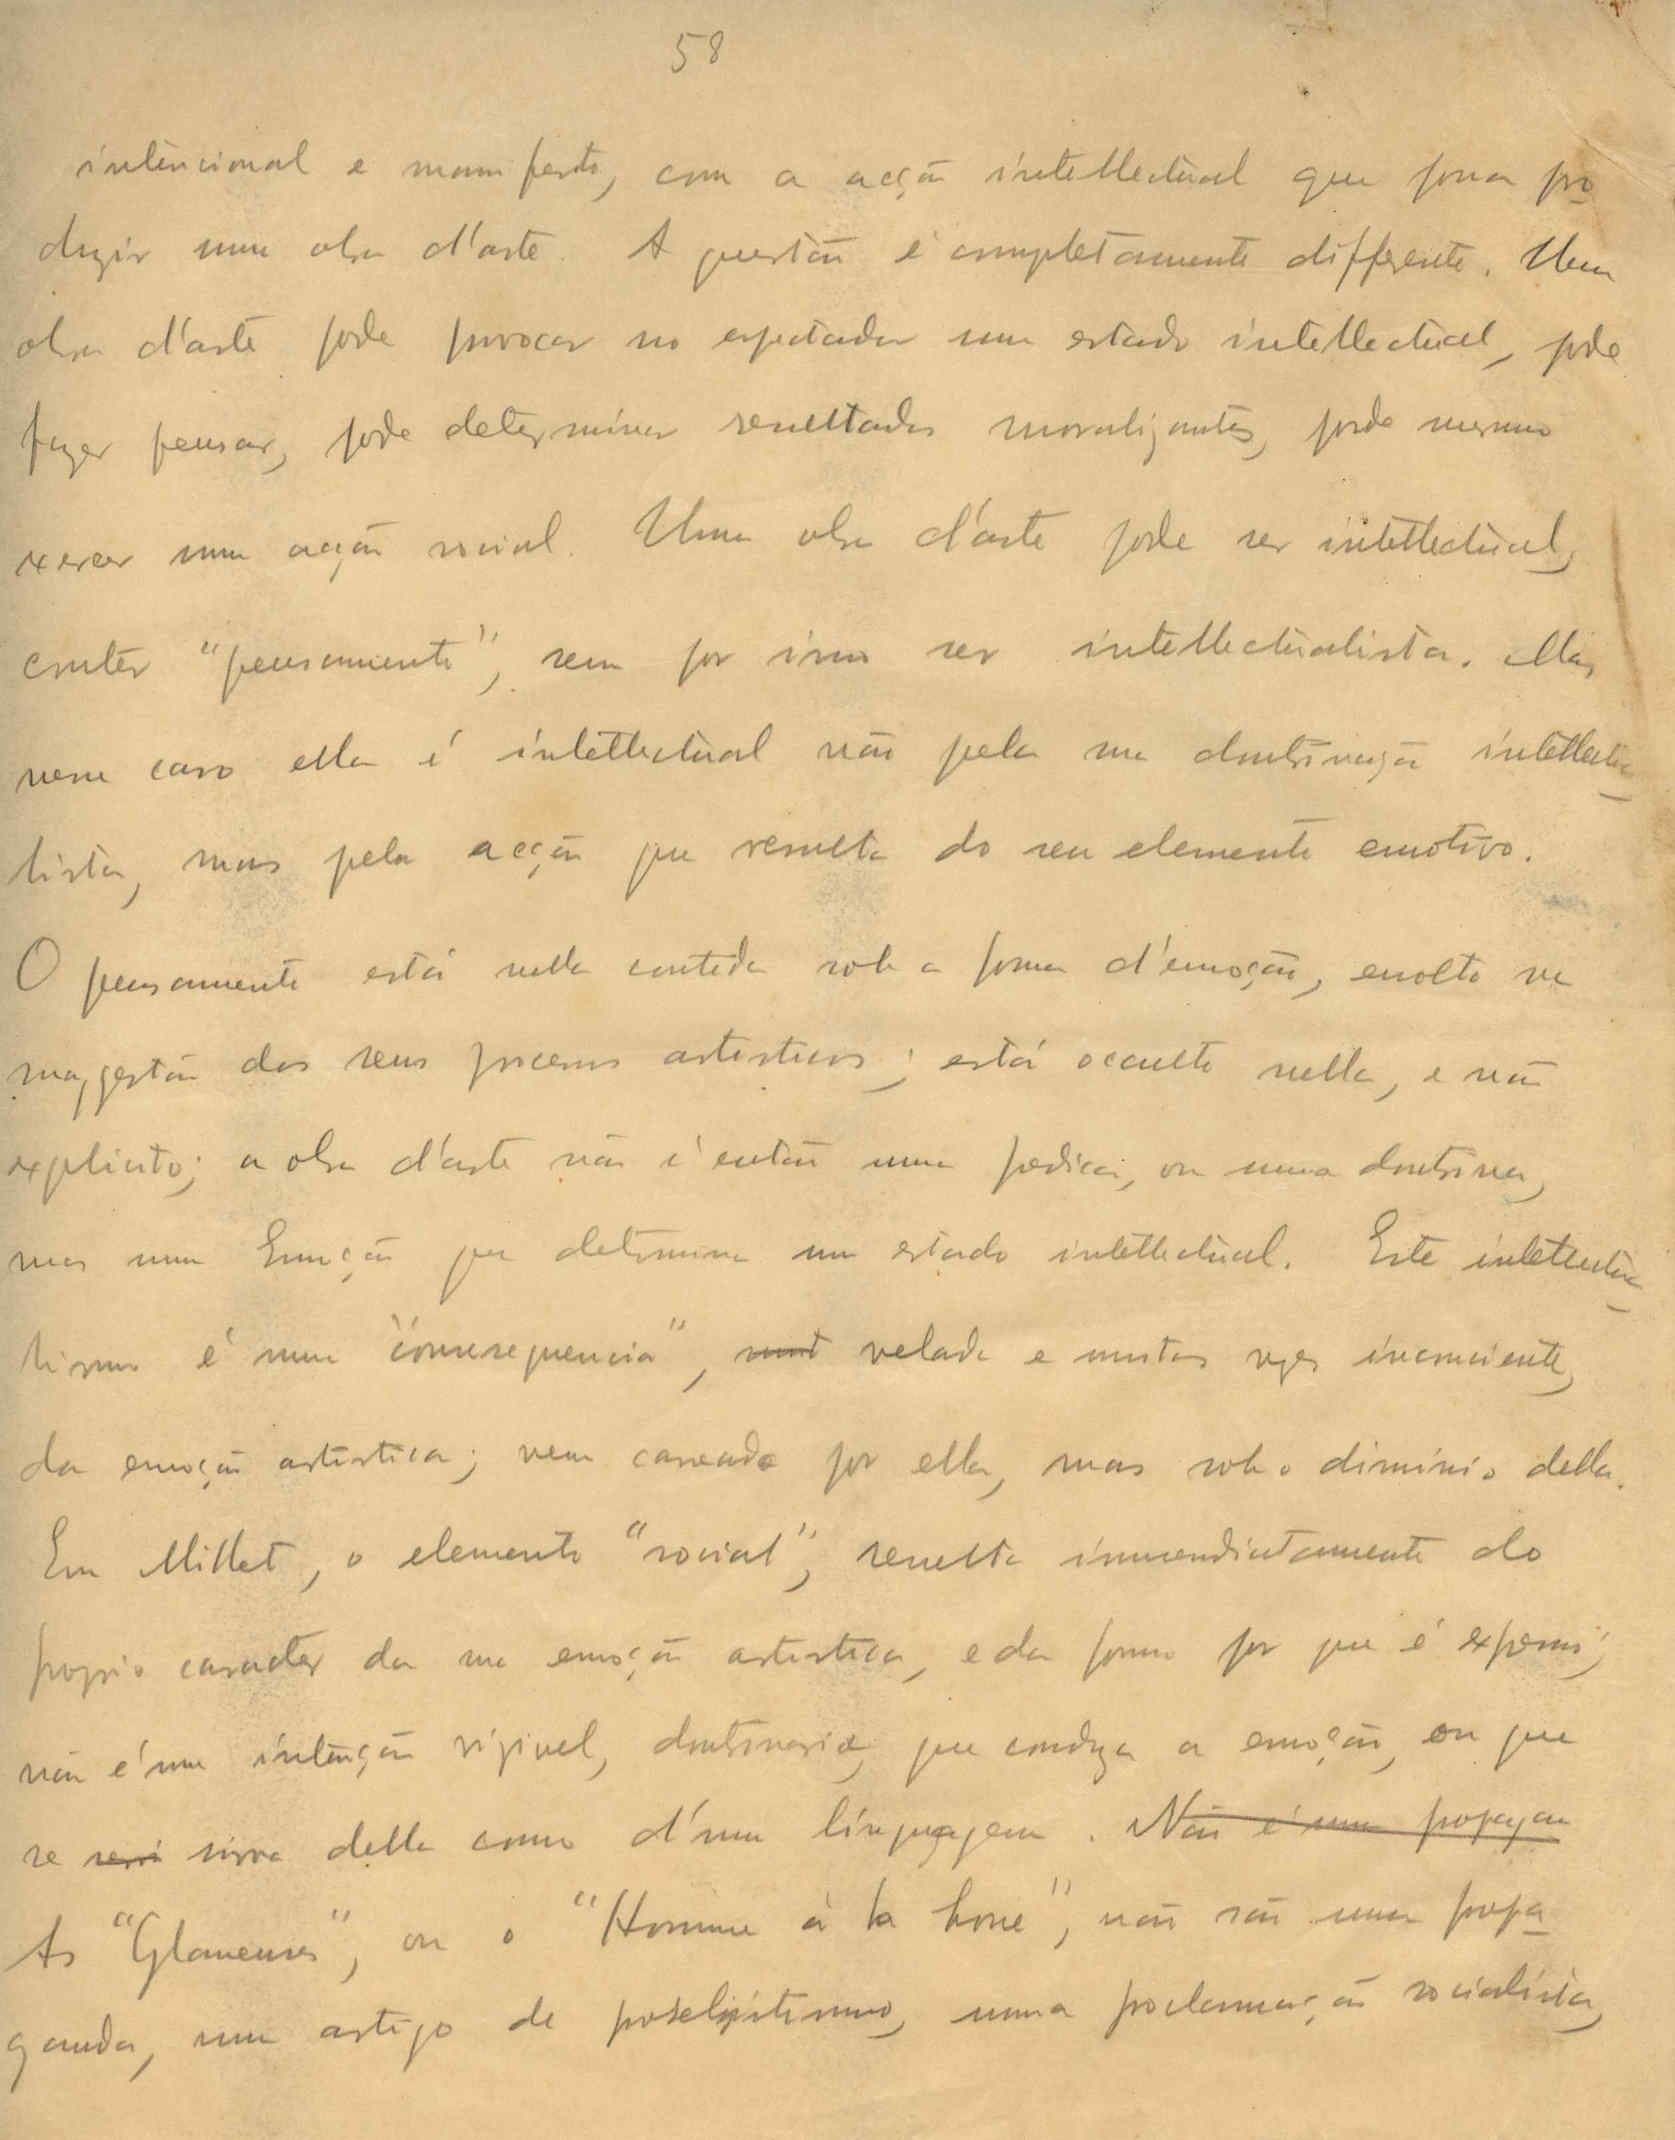 58
intencional e manifesto, com a acção intellectual que possa pro
duzir uma obra d'arte. A questão é completamente differente. Uma
obra d'arte pode provocar no espectador um estado intellectual, pode
fazer pensar, pode determinar resultados moralizantes, pode mesmo
exercer uma acção social. Uma obra d'arte pode ser intellectual,
conter "pensamento", sem por isso ser intellectualista. Mas
nesse caso ella é intellectual não pela sua doutrinação intellectua
lista, mas pela acção que resulta do seu elemento emotivo.
O pensamento está nella contido sob a forma d'emoção, envolto na
suggestão dos seus processos artisticos; está occulto nella, e não
explicito; a obra d'arte não é então uma predica, ou uma doutrina,
mas uma Emoção que determina um estado intellectual. Este intellectua
lismo é uma "consequencia", velada e muitas vezes inconsciente,
da emoção artistica; vem causado por ella, mas sob o diminio della.
Em Millet, o elemento "social", resulta immendiatamente do
proprio caracter da sua emoção artistica, e da forma por que é expressa;
não é uma intenção visivel, doutrinaria, que conduza a emoção, ou que
se sirva della como d'uma linguagem. Não é uma propagan
As "Glaneuses", ou o "Homme à la houe", não são uma propa
ganda, um artigo de proselytismo, uma proclamação socialista,